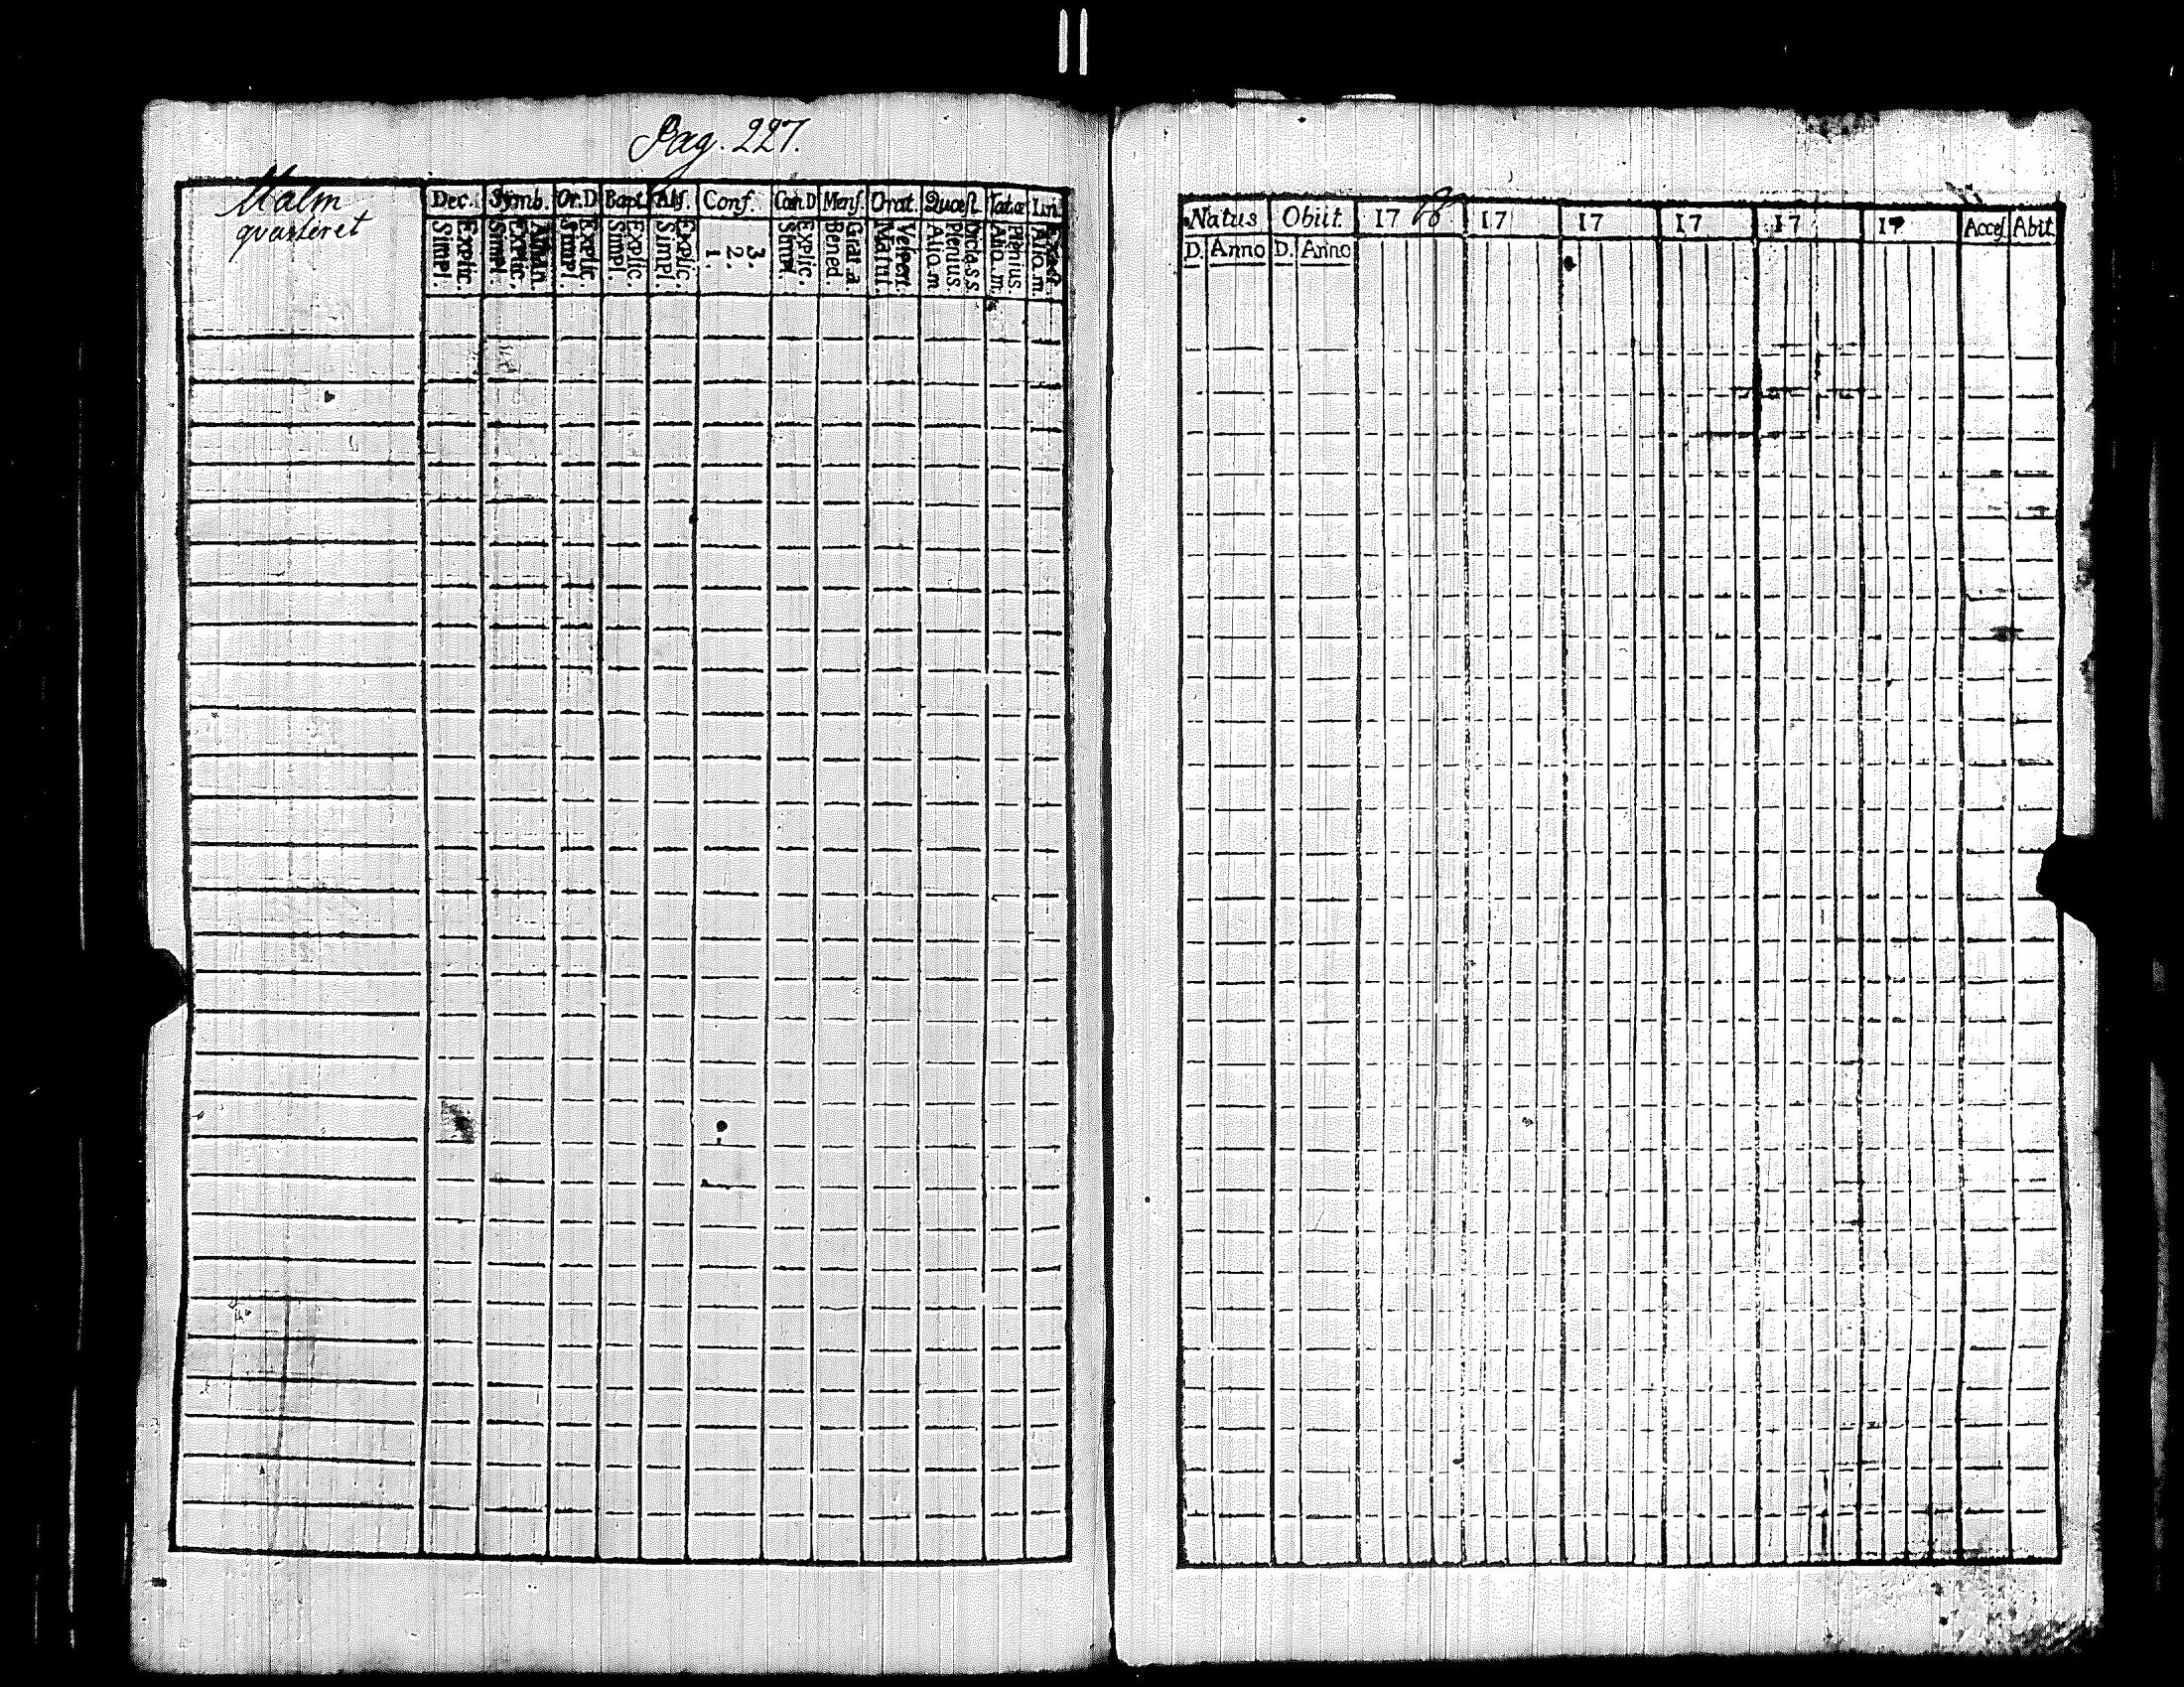 Pag. 227.
Malm
qvarteret
Dec. Symb. Or. D Bapt. Abs. Conf. Cœn. D Mens. Orat. Quæst. Tabæ
Simpl. Explic. Simpl. Explic. Athan. Simpl. Explic. Simpl. Explic. Simpl. Explic. 1. 2. 3. Simpl. Explic. Bened. Grat. a Matut. Vespert. Alio. m Plenius Dicta. s. s. Alio. m. Plenius. Alio. m.
Natus Obiit. 17 68. 17 17 17 17 17 Acces Abit
D. Anno D. Anno